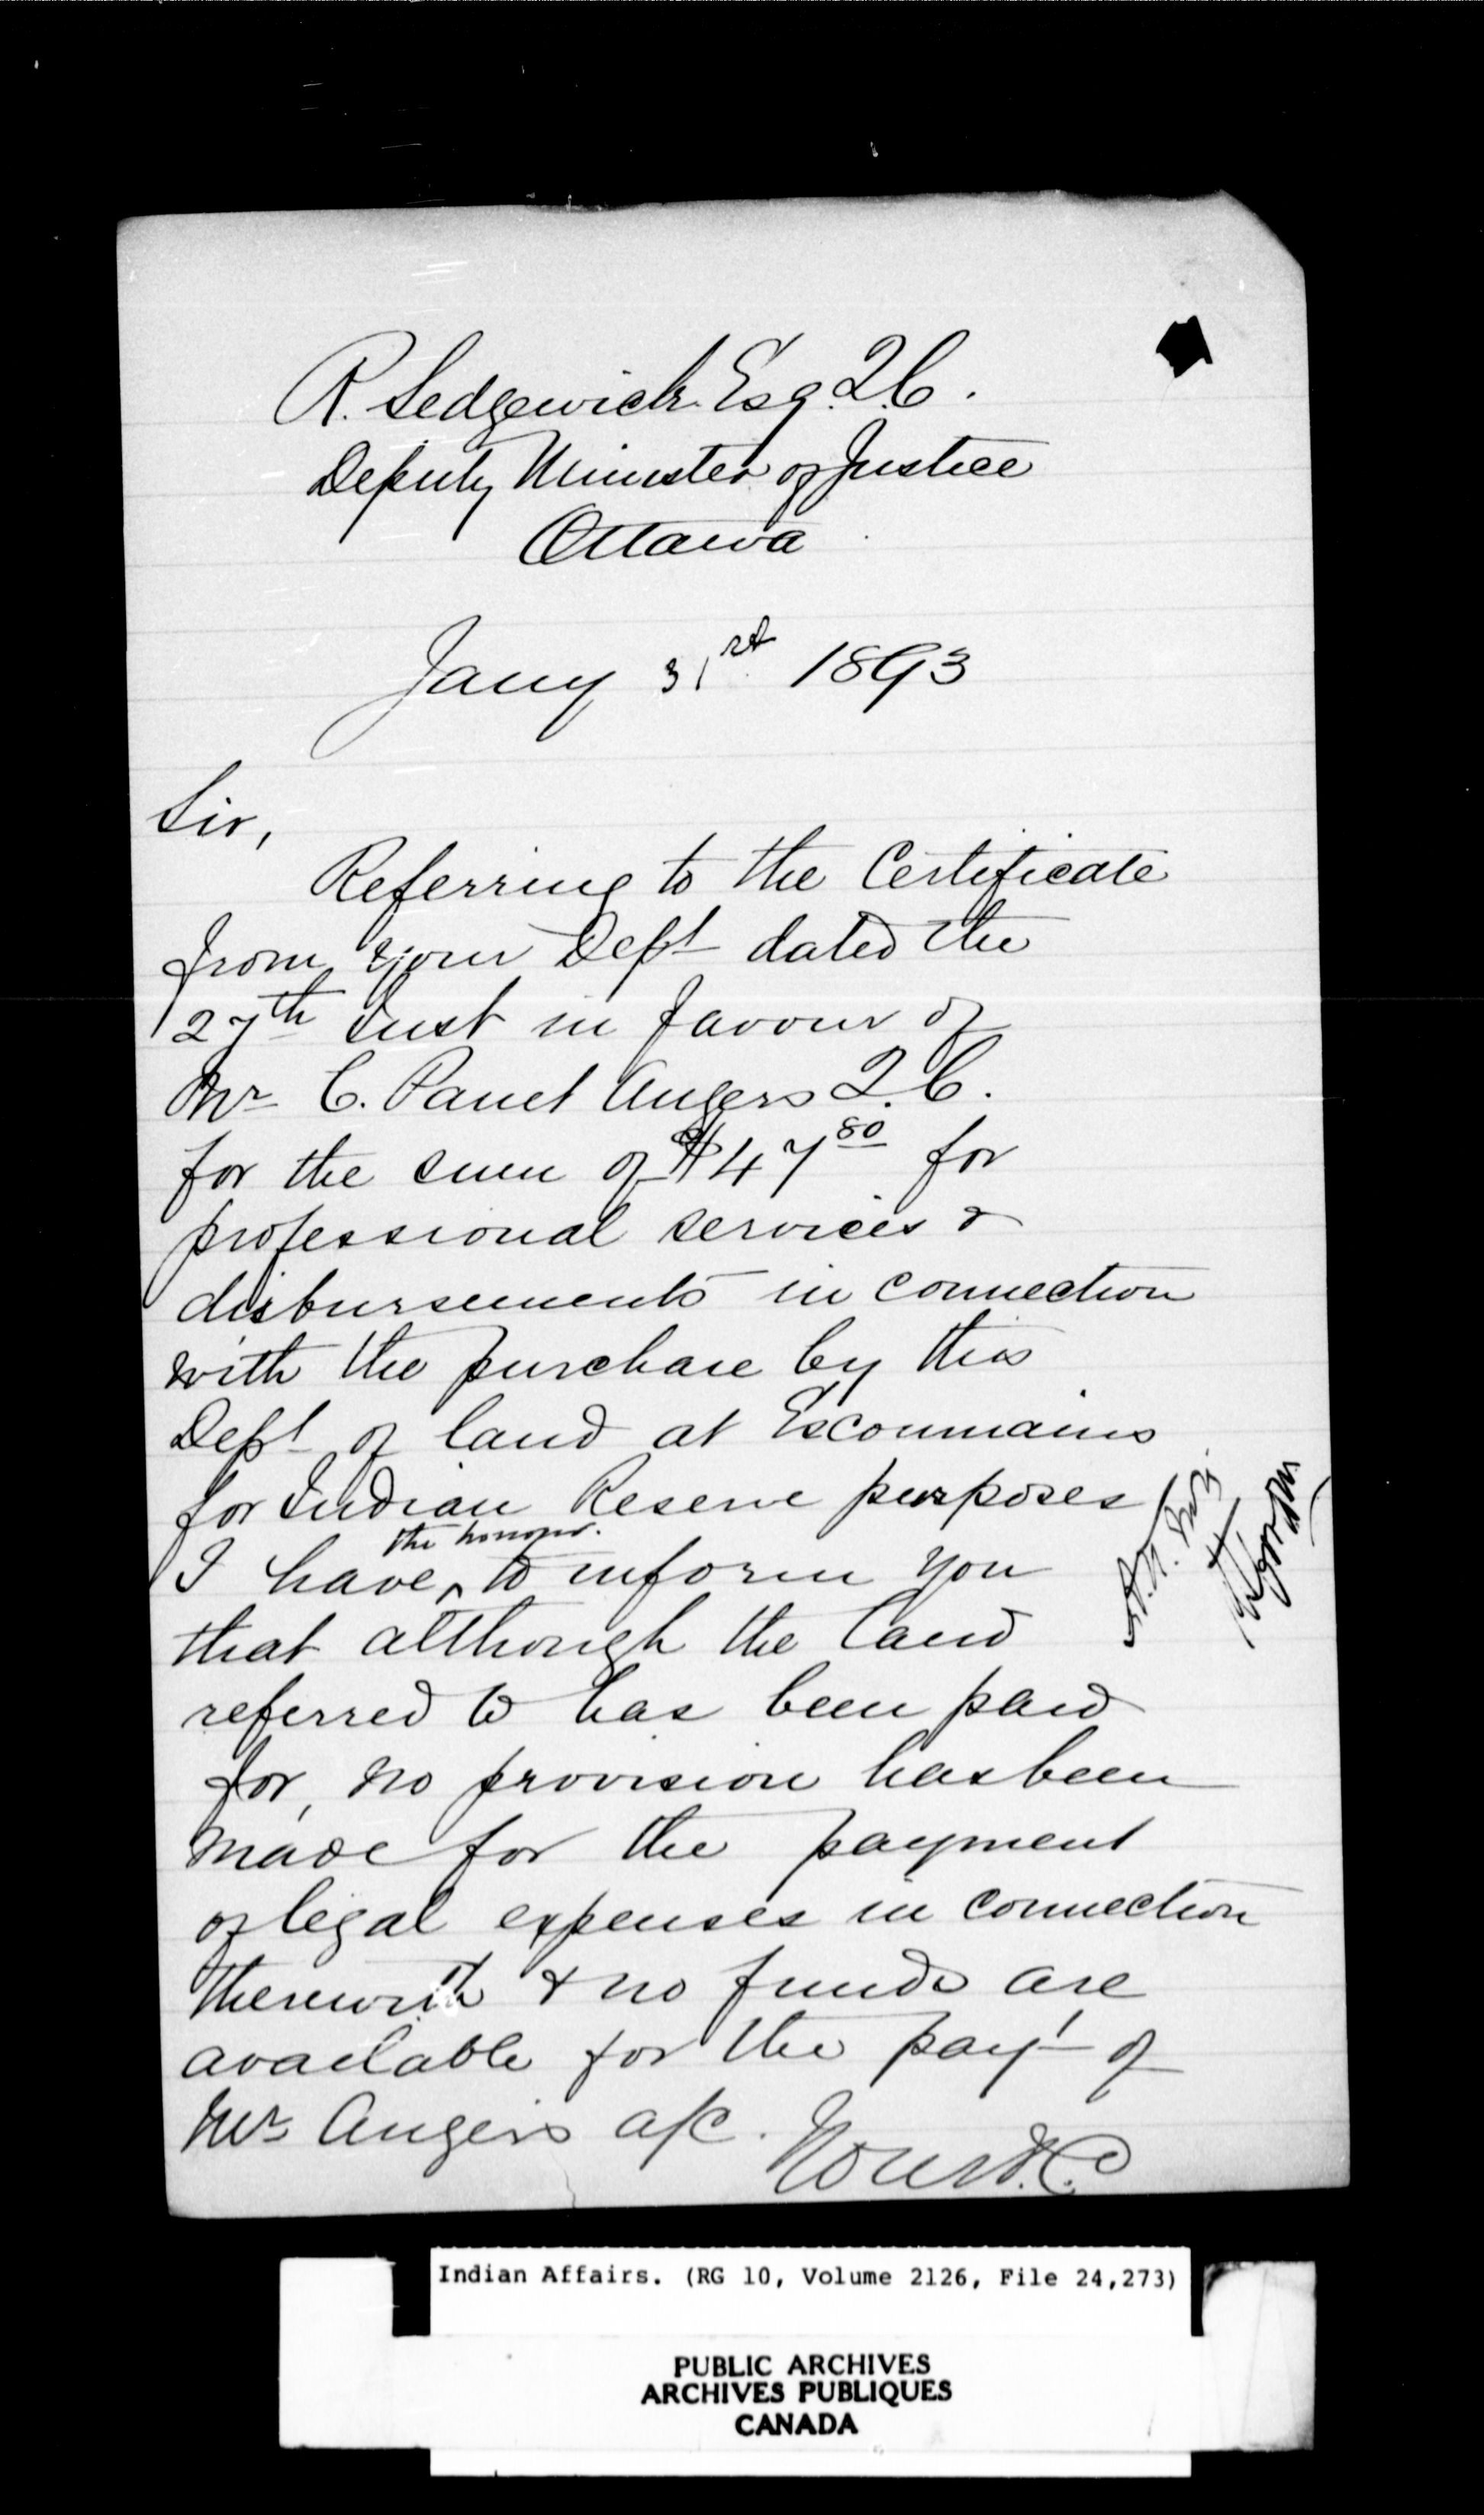 R. Sedgewick Esq. Q.C.
Deputy Minister of Justice
Ottawa
Jany 31st 1893
Sir,
Referring to the Certificate
from your Dept dated the
27th Inst in favour of
Mr C. Panet Angers Q.C.
for the sum of $47 80 for
professional services &
disbursements in connection
with the purchase by this
Dept of land at Escoumains
for Indian Reserve purposes
the honour.
I have ^ to inform you
that although the land
referred to has been paid
for, no provision has been
made for the payment
of legal expenses in connection
therewith & no funds are
available for the payt of
Mr Angers a/c.
Indian Affairs. (RG 10, Volume 2126, File 24,273)
PUBLIC ARCHIVES
ARCHIVES PUBLIQUES
CANADA